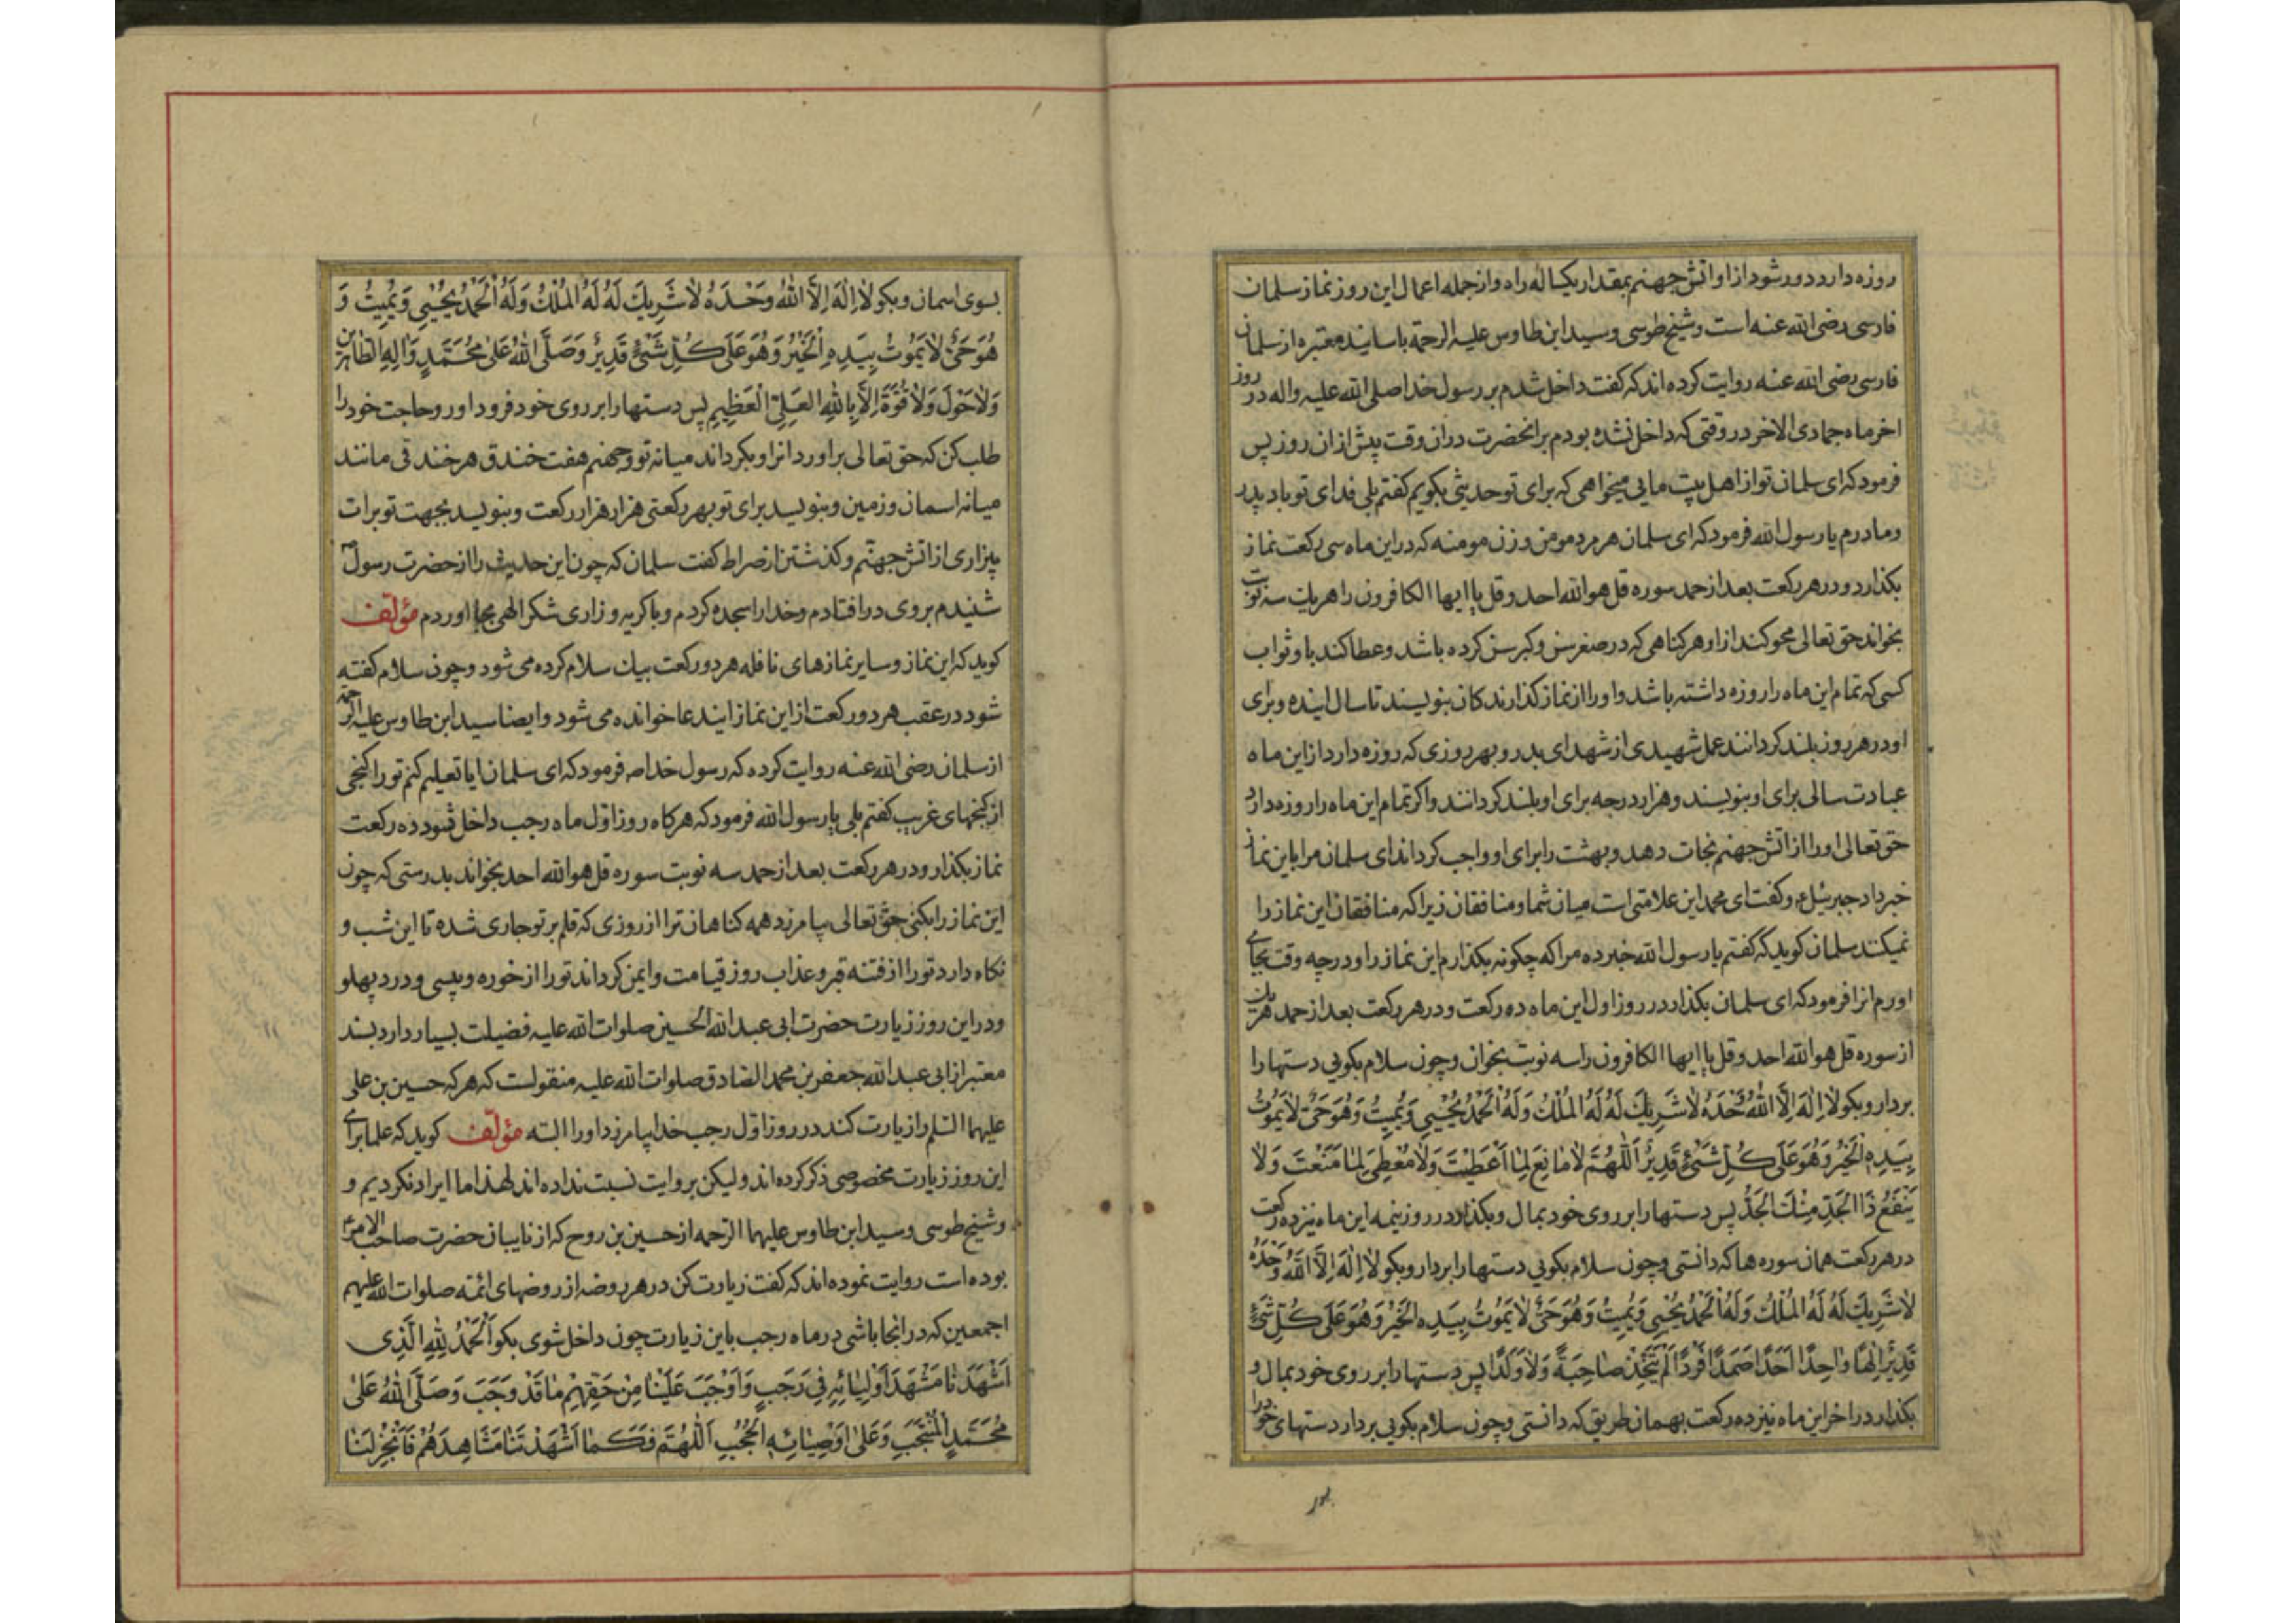 روزه دارد دور شود از او اتش جهنم بمقدار یکساله راه و از جمله اعمال این روز نماز سلمان
فارسی رضی الله عنه است و شیخ طوسی و سید ابن طاوس علیه الرحمة باسانید معتبره از سلمان
فارسی رضی الله عنه روایت کرده اند که گفت داخل شدم بر رسول خدا صلی الله علیه واله در روز
اخر ماه جمادی الاخر در وقتی که داخل نشده بودم بر انحضرت در ان وقت پیش از ان روز پس
فرمود که ای سلمان تو از اهل بیت مایی میخواهی که برای تو حدیثی بگویم گفتم بلی فدای تو باد پدر
و مادرم یا رسول الله فرمود که ای سلمان هر مرد مومن و زن مومنه که در این ماه سی رکعت نماز
بکذارد و در هر رکعت بعد از حمد سوره قل هو الله احد و قل یا ایها الکافرون را هر یک سه نوبت
بخواند حق تعالی محو کند از او هر کناهی که در صغر سن و کبر سن کرده باشد و عطا کند باو ثواب
کسی که تمام این ماه را روزه داشته باشد و او را از نماز کذارندکان بنویسند تا سال اینده و برای
او در هر روز بلند کردانند عمل شهیدی از شهدای بدر و بهر روزی که روزه دارد از این ماه
عبادت سالی برای او بنویسند و هزار درجه برای او بلند کردانند و اکر تمام این ماه را روزه دارد
حق تعالی او را از اتش جهنم نجات دهد و بهشت را برای او واجب کرداند ای سلمان مرا باین نماز
خبر داد جبرئیل ع و کفت ای محمد این علامتی است میان شما و منافقان زیرا که منافقان این نماز را
نمیکنند سلمان کوید که گفتم یا رسول الله خبر ده مرا که چکونه بکذارم این نماز را و در چه وقت بجای
اورم انرا فرمود که ای سلمان بکذار در روز اول این ماه ده رکعت و در هر رکعت بعد از حمد هر یک
از سوره قل هو الله احد و قل یا ایها الکافرون را سه نوبت بخوان و چون سلام بکویی دستها را
بردار و بکو لَا اِلٰهَ اِلَّا اللّٰهُ وَحْدَهُ لَا شَرِيكَ لَهُ لَهُ الْمُلْكُ وَلَهُ الْحَمْدُ يُحْيِي وَيُمِيتُ وَهُوَ حَيٌّ لَا يَمُوتُ
بِيَدِهِ الْخَيْرُ وَهُوَ عَلَى كُلِّ شَيْءٍ قَدِيرٌ اَللّٰهُمَّ لَا مَانِعَ لِمَا اَعْطَيْتَ وَلَا مُعْطِيَ لِمَا مَنَعْتَ وَلَا
يَنْفَعُ ذَا الْجَدِّ مِنْكَ الْجَدُّ پس دستها را بر روی خود بمال و بکذار در روز نیمه این ماه نیز ده رکعت
در هر رکعت همان سوره ها که دانستی و چون سلام بکویی دستها را بردار و بکو لَا اِلٰهَ اِلَّا اللّٰهُ وَحْدَهُ
لَا شَرِيكَ لَهُ لَهُ الْمُلْكُ وَلَهُ الْحَمْدُ يُحْيِي وَيُمِيتُ وَهُوَ حَيٌّ لَا يَمُوتُ بِيَدِهِ الْخَيْرُ وَهُوَ عَلَى كُلِّ شَيْءٍ
قَدِيرٌ اِلٰهًا وَاحِدًا اَحَدًا صَمَدًا فَرْدًا لَمْ يَتَّخِذْ صَاحِبَةً وَلَا وَلَدًا پس دستها را بر روی خود بمال و
بکذار در اخر این ماه نیز ده رکعت بهمان طریق که دانستی و چون سلام بکویی بردار دستهای خود را
بسوی اسمان و بکو لَا اِلٰهَ اِلَّا اللّٰهُ وَحْدَهُ لَا شَرِيكَ لَهُ لَهُ الْمُلْكُ وَلَهُ الْحَمْدُ يُحْيِي وَيُمِيتُ وَ
هُوَ حَيٌّ لَا يَمُوتُ بِيَدِهِ الْخَيْرُ وَهُوَ عَلَى كُلِّ شَيْءٍ قَدِيرٌ وَصَلَّى اللّٰهُ عَلَى مُحَمَّدٍ وَاٰلِهِ الطَّاهِرِينَ
وَلَا حَوْلَ وَلَا قُوَّةَ اِلَّا بِاللّٰهِ الْعَلِيِّ الْعَظِيمِ پس دستها را بر روی خود فرود اور و حاجت خود را
طلب کن که حق تعالی براورد انرا و بکرداند میانه تو و جهنم هفت خندق هر خندقی مانند
میانه اسمان و زمین و بنویسد برای تو بهر رکعتی هزار هزار رکعت و بنویسد بجهت تو برات
بیزاری از اتش جهنم و کذشتن از صراط کفت سلمان که چون این حدیث را از حضرت رسول ص
شنیدم بروی در افتادم و خدا را سجده کردم و با کریه و زاری شکر الهی بجا اوردم مؤلف
کوید که این نماز و سایر نمازهای نافله هر دو رکعت بیک سلام کرده می شود و چون سلام کفته
شود در عقب هر دو رکعت از این نماز ایندعا خوانده می شود و ایضا سید ابن طاوس علیه الرحمه
از سلمان رضی الله عنه روایت کرده که رسول خدا صه فرمود که ای سلمان ایا تعلیم کنم تو را کنجی
از کنجهای غریب کفتم بلی یا رسول الله فرمود که هر کاه روز اول ماه رجب داخل شود ده رکعت
نماز بکذار و در هر رکعت بعد از حمد سه نوبت سوره قل هو الله احد بخواند بدرستی که چون
این نماز را بکنی حق تعالی بیامرزد همه کناهان ترا از روزی که قلم بر تو جاری شده تا این شب و
نکاه دارد تو را از فتنه قبر و عذاب روز قیامت و ایمن کرداند تو را از خوره و پیسی و درد پهلو
و در این روز زیارت حضرت ابی عبد الله الحسین صلوات الله علیه فضیلت بسیار دارد بسند
معتبر از ابی عبد الله جعفر بن محمد الصادق صلوات الله علیه منقولست که هر که حسین بن علی
علیهما السلم را زیارت کند در روز اوّل رجب خدا بیامرزد او را البته مؤلف کوید که علما برای
این روز زیارت مخصوصی ذکر کرده اند و لیکن بروایت نسبت نداده اند لهذا ما ایراد نکردیم و
و شیخ طوسی و سید ابن طاوس علیهما الرحمه از حسین بن روح که از نایبان حضرت صاحب الامر ع
بوده است روایت نموده اند که کفت زیارت کن در هر روضه از روضهای ائمّه صلوات الله علیهم
اجمعین که در انجا باشی در ماه رجب باین زیارت چون داخل شوی بکو اَلْحَمْدُ لِلّٰهِ الَّذِي
اَشْهَدَنَا مَشْهَدَ اَوْلِيَائِهِ فِي رَجَبٍ وَاَوْجَبَ عَلَيْنَا مِنْ حَقِّهِمْ مَا قَدْ وَجَبَ وَصَلَّى اللّٰهُ عَلَى
مُحَمَّدٍ الْمُنْتَجَبِ وَعَلَى اَوْصِيَائِهِ الْحُجُبِ اَللّٰهُمَّ فَكَمَا اَشْهَدْتَنَا مَشَاهِدَهُمْ فَاَنْجِزْ لَنَا